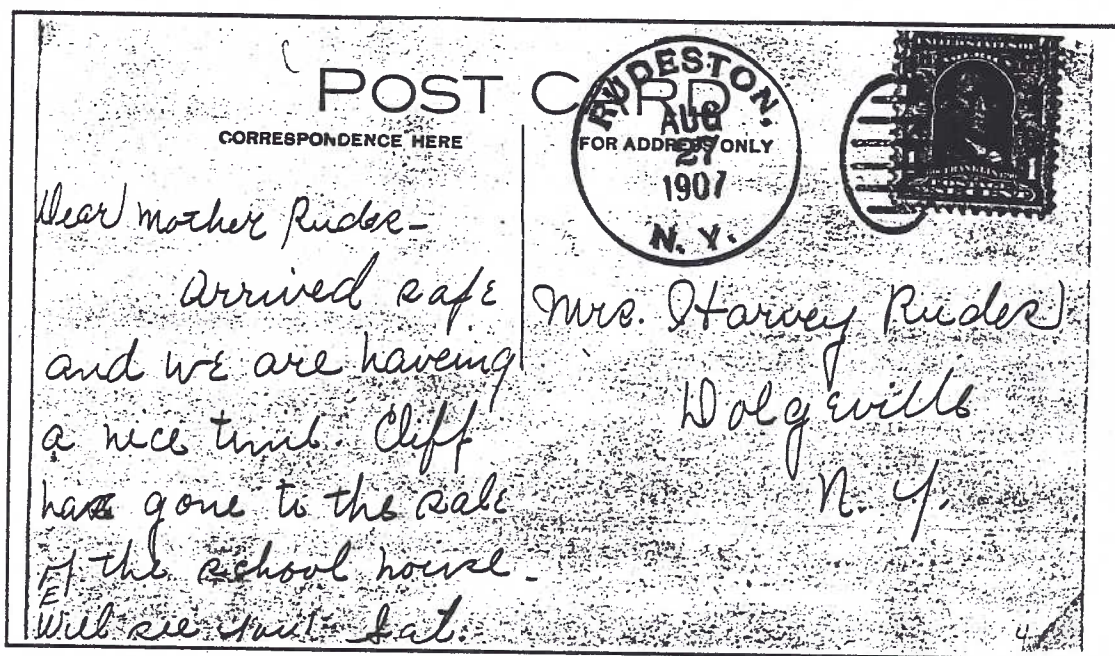 POST CARD
CORRESPONDENCE HERE
FOR ADDRESS ONLY
RUDESTON.
AUG
27
1907
N. Y.
Dear Mother Rudes-
Arrived safe
and we are haveing
a nice time. Cliff
has gone to the sale
of the school house.
Will see you Sat.
Mrs. Harvey Rudes
Dolgeville
N. Y.
4